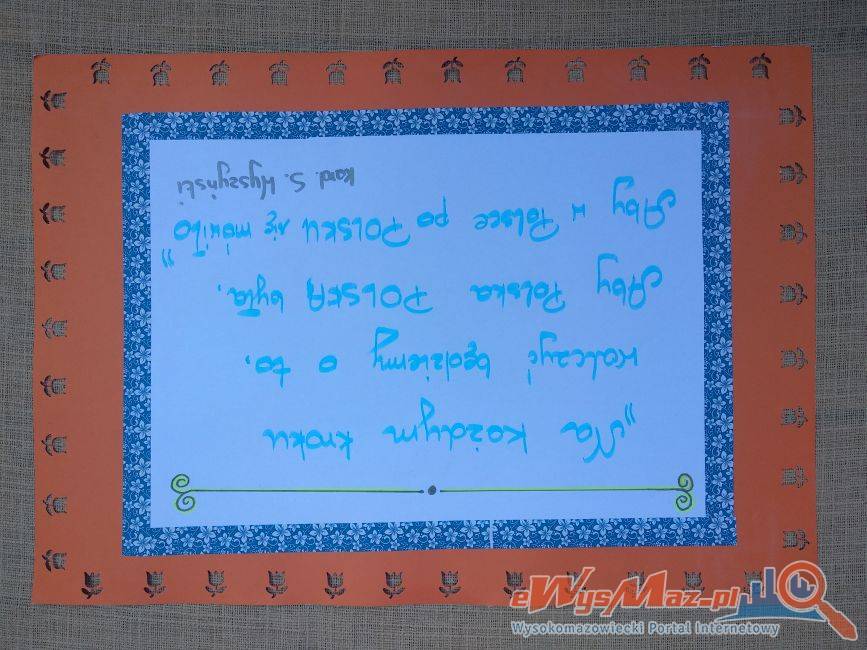 „Na każdym kroku
walczyć będziemy o to,
Aby Polska POLSKĄ była,
Aby w Polsce po POLSKU się mówiło”
Kard. S. Wyszyński
eWysMaz.pl
Wysokomazowiecki Portal Internetowy